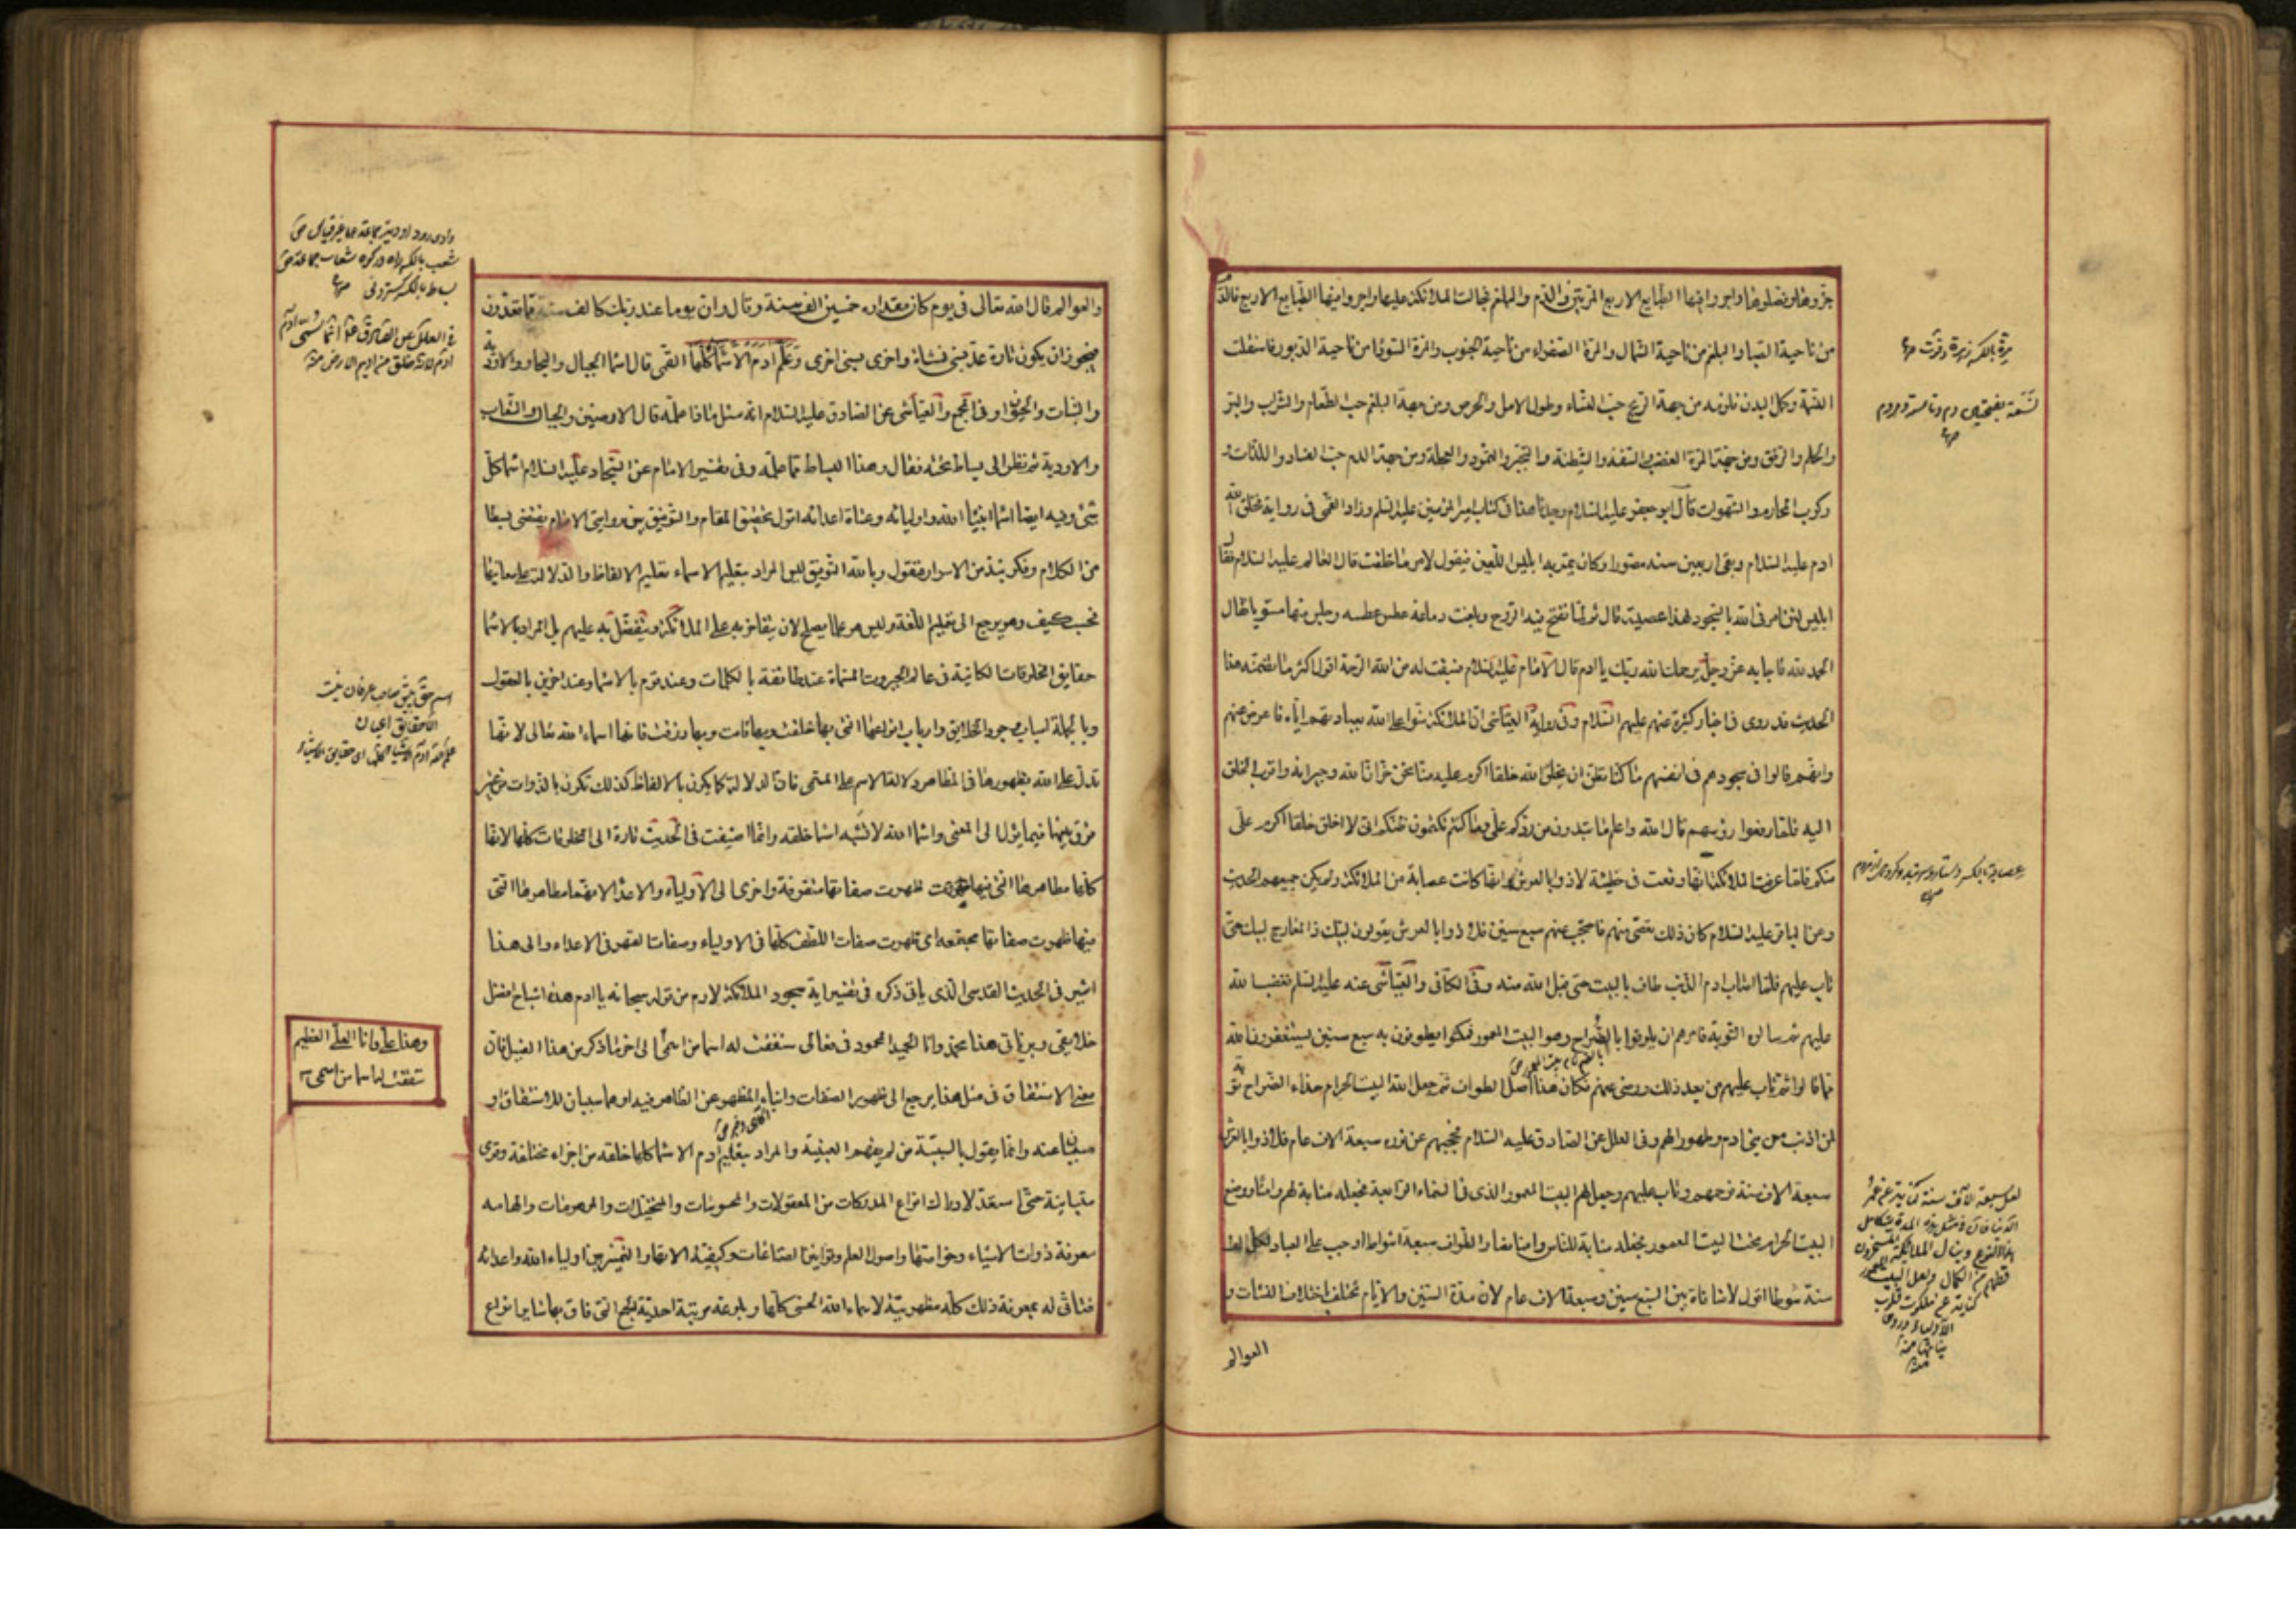 جزؤها وفصلوها واجروا فيها الطبايع الاربع المرتين والدم والبلغم فجالت الملائكة عليها واجروا فيها الطبايع الاربع فالدم
من ناحية الصبا والبلغم من ناحية الشمال والمرة الصفراء من ناحية الجنوب والمرة السودا من ناحية الدبور فاستقلت
النسمة وكمل البدن فلزمه من جهة الريح حب النساء وطول الامل والحرص ومن جهة البلغم حب الطعام والشراب والبر
والحلم والرفق ومن جهة المرة الغضب والسفه والشيطنة والتجبر والتمرد والعجلة ومن جهة الدم حب الفساد واللذات
ركوب المحارم والشهوات قال ابو جعفر عليه السلام وجدنا هذا في كتاب امير المؤمنين عليه السلم وزاد القمي في رواية فخلق الله
ادم عليه السلام وبقي اربعين سنة مصورا وكان يمر به ابليس اللعين فيقول لامر ما خلقت قال العالم عليه السلام فقال
ابليس لئن امرني الله بالسجود لهذا عصيته قال ثم لما نفخ فيه الروح وبلغت دماغه عطس عطسه وجلس منها مستويا فقال
الحمد لله فاجابه عز وجل يرحمك الله ربك يا ادم قال الامام عليه السلام فسبقت له من الله الرحمة اقول اكثر ما تضمنته هذا
الحديث قد روي في اخبار كثيرة عنهم عليهم السلام وفي رواية العياشي ان الملائكة منوا على الله بعبادتهم اياه فاعرض عنهم
وانهم قالوا في سجودهم في انفسهم ما كنا نظن ان يخلق الله خلقا اكرم عليه منا نحن خزان الله وجيرانه واقرب الخلق
اليه فلما رفعوا رؤسهم قال الله واعلم ما تبدون من ردكم علي وما كنتم تكتمون ظنكم اني لا اخلق خلقا اكرم علي
منكم فلما عرفت الملائكة انها وقعت في خطيئة لاذوا بالعرش وانها كانت عصابة من الملائكة ولم يكن جميعهم الحديث
وعن الباقر عليه السلام كان ذلك بعضى منهم فاحتجب عنهم سبع سنين فلاذوا بالعرش يقولون لبيك ذا المعارج لبيك حتى
تاب عليهم فلما اصاب ادم الذنب طاف بالبيت حتى قبل الله منه وفي الكافي والعياشي عنه عليه السلم فغضب الله
عليهم ثم سالوه التوبة فامرهم ان يطوفوا بالضراح وهو البيت المعمور فمكثوا يطوفون به سبع سنين يستغفرون الله
مما قالوا ثم تاب عليهم من بعد ذلك ورضي عنهم فكان هذا اصل الطواف ثم جعل الله البيت الحرام حذاء الضراح توبة
لمن اذنب من بني ادم وطهورا لهم وفي العلل عن الصادق عليه السلام فحجبهم عن نوره سبعة الاف عام فلاذوا بالعرش
سبعة الاف سنة فرحمهم وتاب عليهم وجعل لهم البيت المعمور الذي في السماء الرابعة فجعله مثابة لهم وامنا ووضع
البيت الحرام تحت البيت المعمور فجعله مثابة للناس وامنا فصار الطواف سبعة اشواط اوجب على العباد لكل الف
سنة شوطا اقول لا منافاة بين السبع سنين وسبعة الاف عام لان مدة السنين والايام تختلف باختلاف النشات و
العوالم
مرة بالكسر زهرة وقوت
نسمة بفتحتين دم
عصابة بالكسر
لعل سبعة الاف سنة كناية عن عمر
والعوالم قال الله تعالى في يوم كان مقداره خمسين الف سنة وقال وان يوما عند ربك كالف سنة مما تعدون
فيجوز ان يكون تارة عد بسني نشاة واخرى بسني اخرى وعلم ادم الاسماء كلها القمي قال اسماء الجبال والبحار والاودية
والنبات والحيوان وفي المجمع والعياشي عن الصادق عليه السلام انه سئل ماذا علمه قال الارضين والجبال والشعاب
والاودية ثم نظر الى بساط تحته فقال وهذا البساط مما علمه وفي تفسير الامام عن السجاد عليه السلام اسماء كل
شئ وفيه ايضا اسماء انبياء الله واوليائه وعتاة اعدائه اقول تحقيق المقام والتوفيق بين روايتي الامام يقتضي بسطا
من الكلام وذكر نبذ من الاسرار فنقول وبالله التوفيق ليس المراد بتعليم الاسماء تعليم الالفاظ والدلالة على معانيها
فحسب كيف وهو يرجع الى تعليم اللغة وليس هو علما يصلح لان يتفاخر به على الملائكة ويتفضل به عليهم بل المراد بالاسماء
حقايق المخلوقات الكائنة في عالم الجبروت المسماة عند طائفة بالكلمات وعند قوم بالاسماء وعند اخرين بالعقول
وبالجملة اسباب وجود الخلايق وارباب انواعها التي بها خلقت وبها قامت وبها رزقت فانها اسماء الله تعالى لانها
تدل على الله بظهورها في المظاهر دلالة الاسم على المسمى فان الدلالة كما يكون بالالفاظ كذلك تكون بالذوات من غير
فرق بينهما فيما يؤل الى المعنى واسماء الله لا تشبه اسماء خلقه وانما اضيفت في الحديث تارة الى المخلوقات كلها لانها
كلها مظاهرها التي فيها ظهرت صفاتها متفرقة واخرى الى الاولياء والاعداء لانهما مظاهرها التي
فيها ظهرت صفاتها مجتمعه اي ظهرت صفات اللطف كلها في الاولياء وصفات القهر في الاعداء والى هذا
اشير في الحديث القدسي الذي ياتي ذكره في تفسير اية سجود الملائكة لادم من قوله سبحانه يا ادم هذه اشباح افضل
خلائقي وبرياتي هذا محمد وانا الحميد المحمود في فعالي شققت له اسما من اسمي الى اخر ما ذكر من هذا القبيل فان
معنى الاشتقاق في مثل هذا يرجع الى ظهور الصفات وانباء المظهر عن الظاهر فيه او هما سببان للاشتقاق او
مسببان عنه وانما يقول بالسببية من لم يفهم العينية والمراد بتعليم ادم الاسماء كلها خلقه من اجزاء مختلفة وقوى
متباينة حتى استعد لادراك انواع المدركات من المعقولات والمحسوسات والمتخيلات والموهومات والهامه
معرفة ذوات الاشياء وخواصها واصول العلم وقوانين الصناعات وكيفية الاتها والتميز بين اولياء الله واعدائه
فتاتى له بمعرفة ذلك كله مظهريته لاسماء الله الحسنى كلها وبلوغه مرتبة احدية الجمع التي فاق بها سائر انواع
شعب بالكسر راه در كوه شعاب جماعة
بساط بالكسر گستردني
في العلل عن الصادق انما سمي ادم
ادم لانه خلق من اديم الارض منه
وهذا علي وانا العلي العظيم
شققت له اسما من اسمي